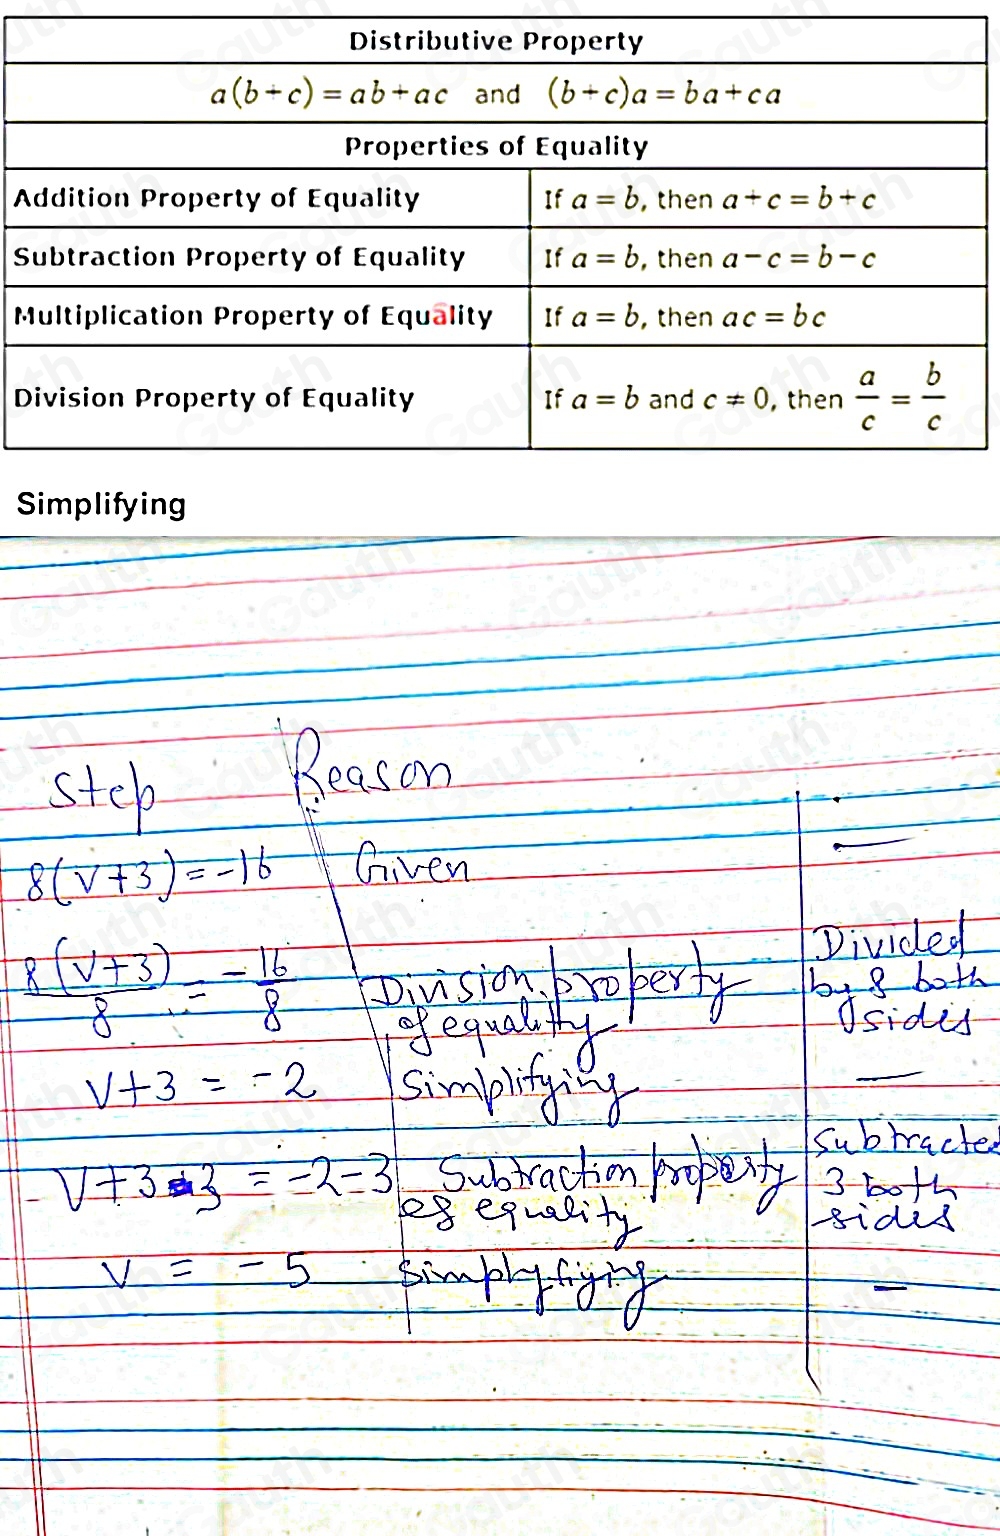 Distributive Property
a(b+c) = ab+ac and (b+c)a = ba+ca
Properties of Equality
Addition Property of Equality If a = b, then a+c = b+c
Subtraction Property of Equality If a = b, then a-c = b-c
Multiplication Property of Equality If a = b, then ac = bc
Division Property of Equality If a = b and c ≠ 0, then a/c = b/c
Simplifying
Step Reason
8(v+3) = -16 Given —
8(v+3)/8 = -16/8 Division property of equality Divided by 8 both sides
v+3 = -2 Simplifying —
v+3-3 = -2-3 Subtraction property of equality Subtracted 3 both sides
v = -5 Simplyfiying —
Gauth